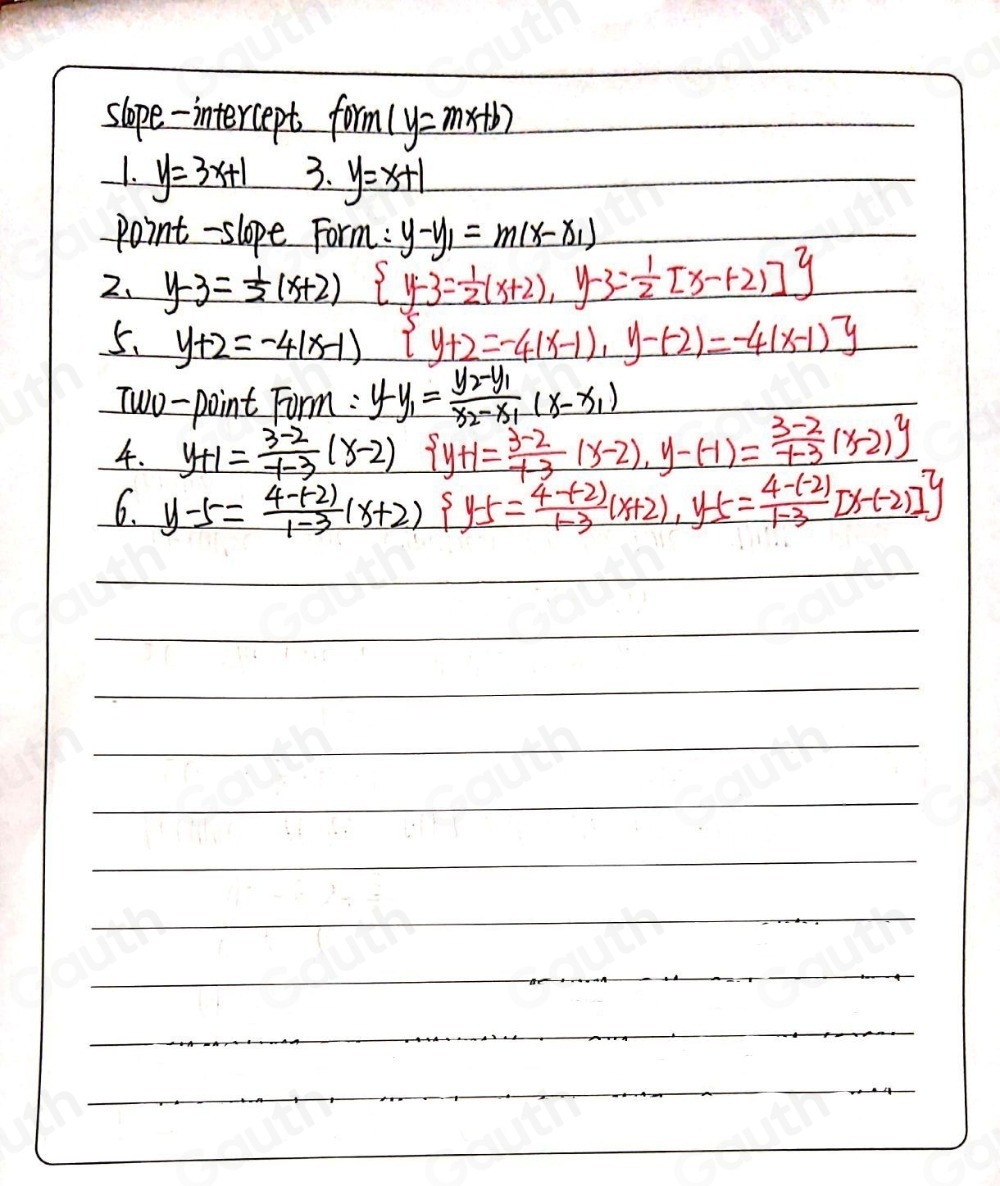 slope-intercept form (y=mx+b)
1. y=3x+1 3. y=x+1
Point-slope Form: y-y₁ = m(x-x₁)
2. y-3=½(x+2) { y-3=½(x+2), y-3=½[x-(-2)] }
5. y+2=-4(x-1) { y+2=-4(x-1), y-(-2)=-4(x-1) }
Two-point Form: y-y₁ = (y₂-y₁)/(x₂-x₁) (x-x₁)
4. y+1 = (3-2)/(-1-3) (x-2) { y+1 = (3-2)/(-1-3) (x-2), y-(-1) = (3-2)/(-1-3) (x-2) }
6. y-5 = (4-(-2))/(1-3) (x+2) { y-5 = (4-(-2))/(1-3) (x+2), y-5 = (4-(-2))/(1-3) [x-(-2)] }